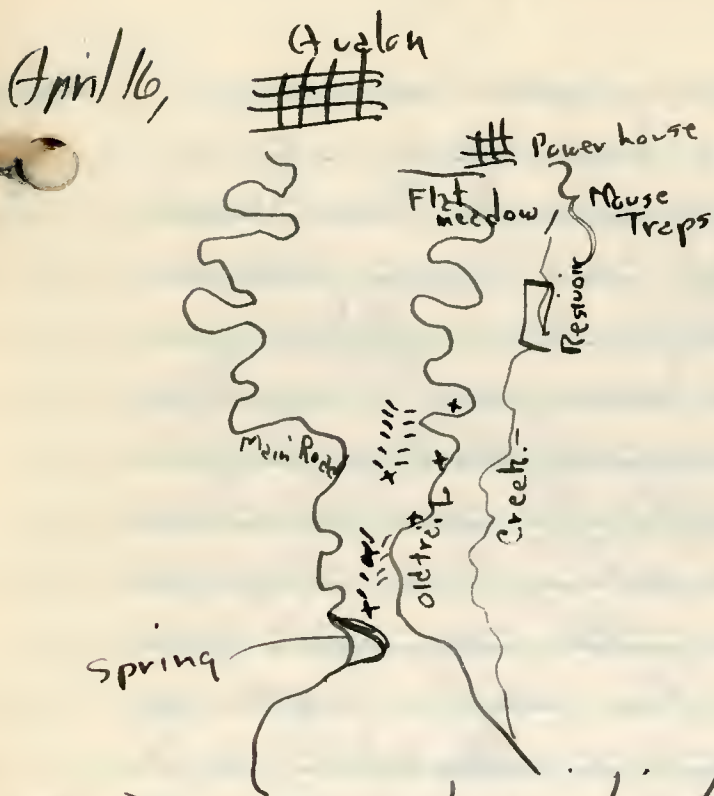 April 16,
Avalon
Power house
Flat
meadow
Mouse
Traps
Resivoir
Main Road
old trail
Creek.
Spring